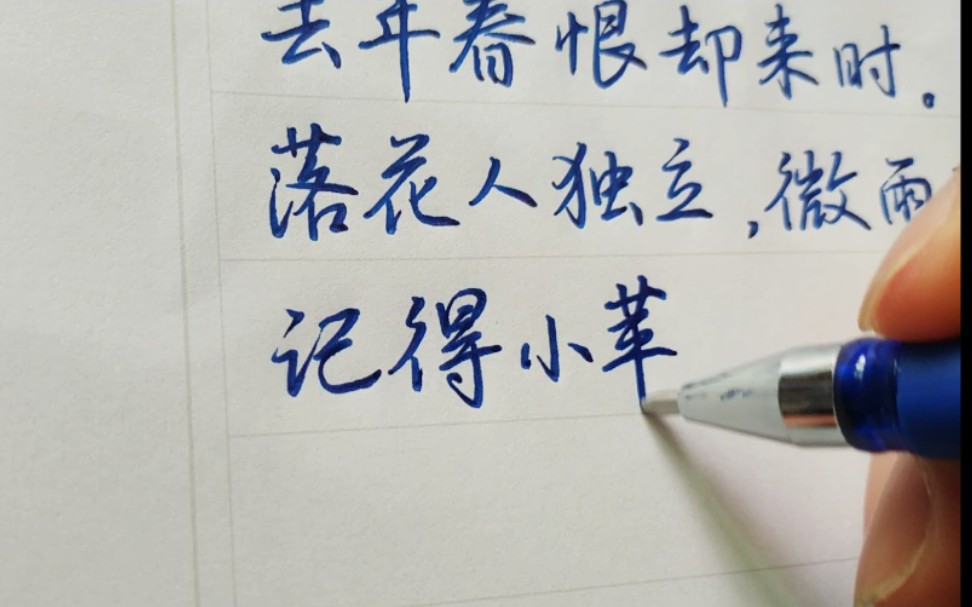 去年春恨却来时。
落花人独立,微雨
记得小苹